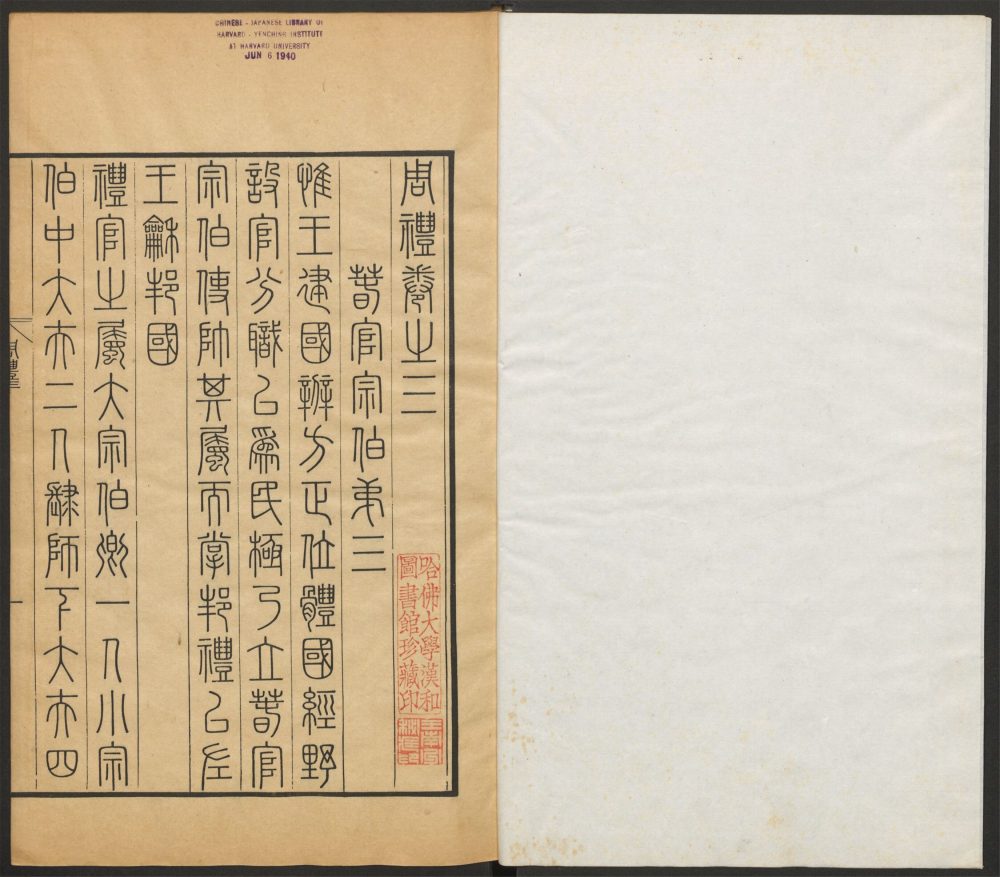 CHINESE - JAPANESE LIBRARY OF
HARVARD - YENCHING INSTITUTE
AT HARVARD UNIVERSITY
JUN 6 1940
周禮卷之三
春官宗伯弟三
惟王建國辨方正位體國經野
設官分職以爲民極乃立春官
宗伯使帥其屬而掌邦禮以左
王龢邦國
禮官之屬大宗伯卿一人小宗
伯中大夫二人肆師下大夫四
哈佛大學漢和
圖書館珍藏印
一